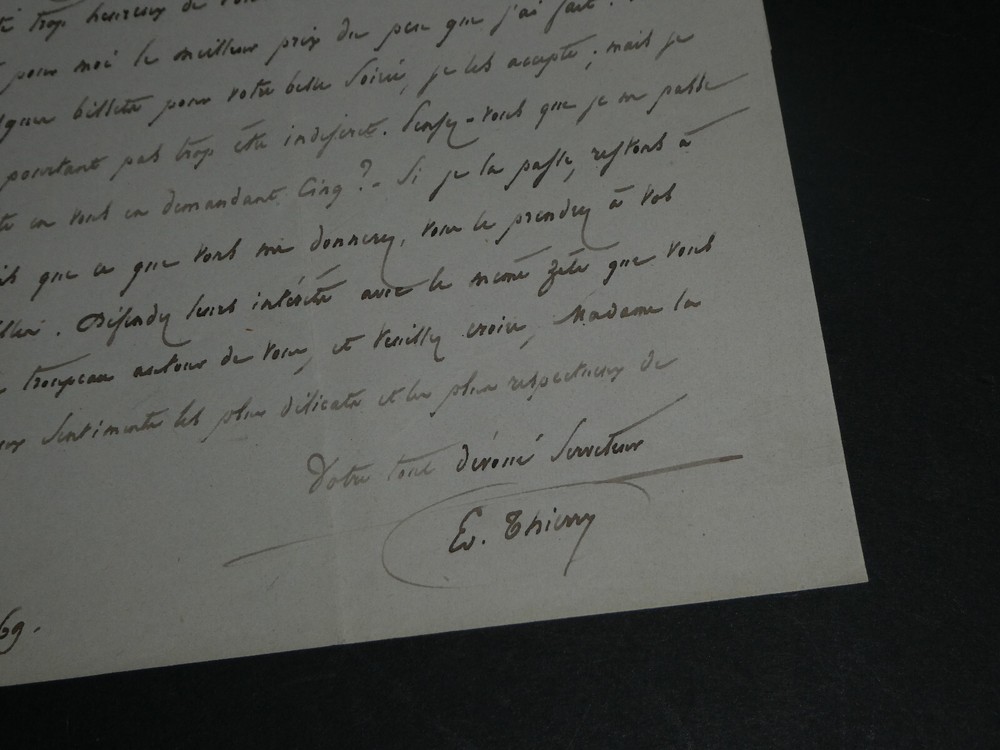 trop heureux de
pour moi le meilleur prix du peu que j'ai fait.
billets pour votre belle Soirée, je les accepte ; mais je
pourtant pas trop être indiscret. Pensez-vous que je me passe
en vous en demandant Cinq ? - Si je la passe, restons à
que ce que vous me donnerez, vous le prendrez à vos
. Défendez leurs intérêts avec le même zèle que vous
troupeau autour de vous, et veuillez croire, Madame la
Sentiments les plus délicats et les plus respectueux de
Votre tout dévoué Serviteur
Ed. Thierry
69.